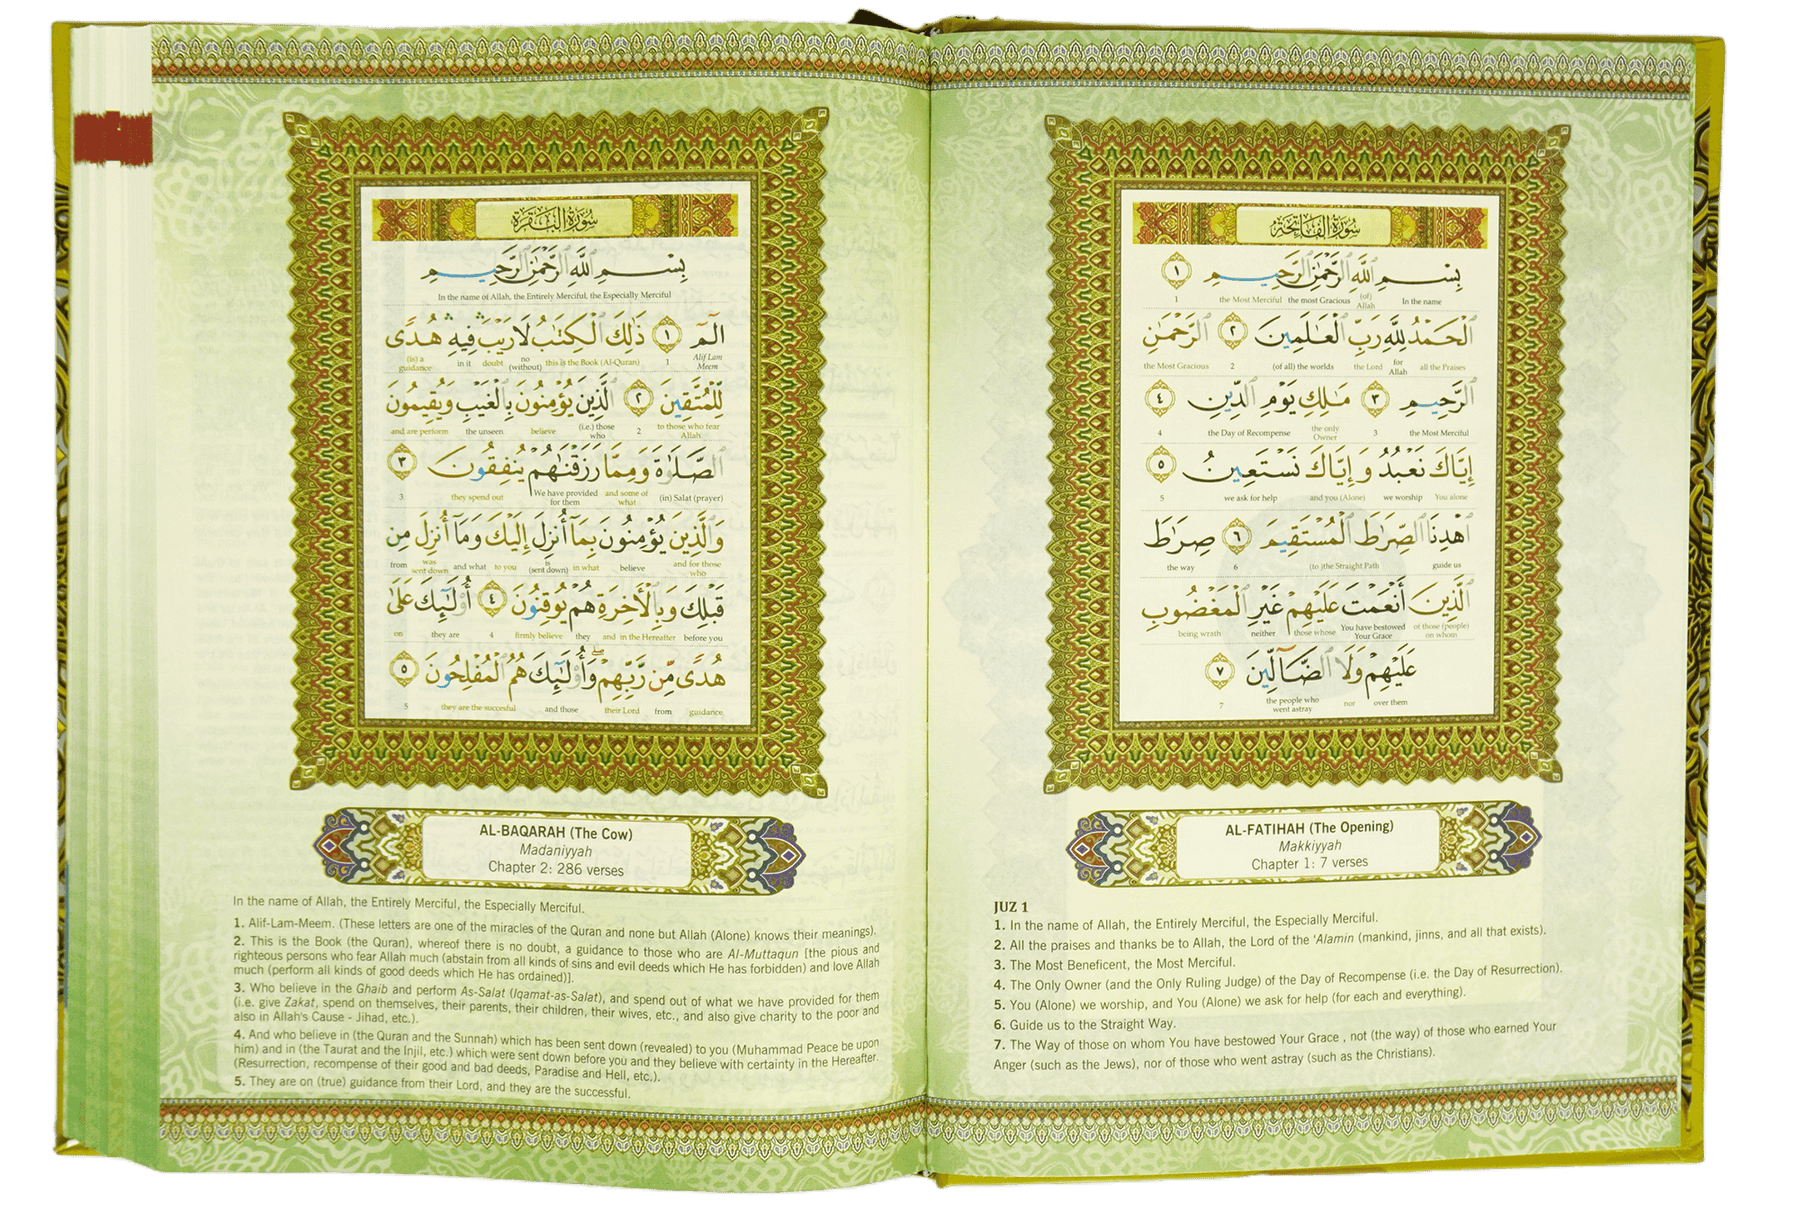 سُورَةُ الْفَاتِحَةِ
بِسْمِ ٱللَّهِ ٱلرَّحْمَٰنِ ٱلرَّحِيمِ ١
1 the Most Merciful the most Gracious (of) Allah In the name
ٱلْحَمْدُ لِلَّهِ رَبِّ ٱلْعَٰلَمِينَ ٢ ٱلرَّحْمَٰنِ
the Most Gracious 2 (of all) the worlds the Lord for Allah all the Praises
ٱلرَّحِيمِ ٣ مَٰلِكِ يَوْمِ ٱلدِّينِ ٤
4 the Day of Recompense the only Owner 3 the Most Merciful
إِيَّاكَ نَعْبُدُ وَإِيَّاكَ نَسْتَعِينُ ٥
5 we ask for help and you (Alone) we worship You alone
ٱهْدِنَا ٱلصِّرَٰطَ ٱلْمُسْتَقِيمَ ٦ صِرَٰطَ
the way 6 (to )the Straight Path guide us
ٱلَّذِينَ أَنْعَمْتَ عَلَيْهِمْ غَيْرِ ٱلْمَغْضُوبِ
being wrath neither those whose You have bestowed Your Grace of those (people) on whom
عَلَيْهِمْ وَلَا ٱلضَّآلِّينَ ٧
7 the people who went astray nor over them
AL-FATIHAH (The Opening)
Makkiyyah
Chapter 1: 7 verses
JUZ 1
1. In the name of Allah, the Entirely Merciful, the Especially Merciful.
2. All the praises and thanks be to Allah, the Lord of the 'Alamin (mankind, jinns, and all that exists).
3. The Most Beneficent, the Most Merciful.
4. The Only Owner (and the Only Ruling Judge) of the Day of Recompense (i.e. the Day of Resurrection).
5. You (Alone) we worship, and You (Alone) we ask for help (for each and everything).
6. Guide us to the Straight Way.
7. The Way of those on whom You have bestowed Your Grace , not (the way) of those who earned Your
Anger (such as the Jews), nor of those who went astray (such as the Christians).
سُورَةُ الْبَقَرَةِ
بِسْمِ ٱللَّهِ ٱلرَّحْمَٰنِ ٱلرَّحِيمِ
In the name of Allah, the Entirely Merciful, the Especially Merciful
الٓمٓ ١ ذَٰلِكَ ٱلْكِتَٰبُ لَا رَيْبَ ۛ فِيهِ ۛ هُدًى
(is) a guidance in it doubt no (without) this is the Book (Al-Quran) 1 Alif Lam Meem
لِّلْمُتَّقِينَ ٢ ٱلَّذِينَ يُؤْمِنُونَ بِٱلْغَيْبِ وَيُقِيمُونَ
and are perform the unseen believe (i.e.) those who 2 to those who fear Allah
ٱلصَّلَوٰةَ وَمِمَّا رَزَقْنَٰهُمْ يُنفِقُونَ ٣
3 they spend out We have provided for them and some of what (in) Salat (prayer)
وَٱلَّذِينَ يُؤْمِنُونَ بِمَآ أُنزِلَ إِلَيْكَ وَمَآ أُنزِلَ مِن
from was sent down and what to you is (sent down) in what believe and for those who
قَبْلِكَ وَبِٱلْأَخِرَةِ هُمْ يُوقِنُونَ ٤ أُو۟لَٰٓئِكَ عَلَىٰ
on they are 4 firmly believe they and in the Hereafter before you
هُدًى مِّن رَّبِّهِمْ ۖ وَأُو۟لَٰٓئِكَ هُمُ ٱلْمُفْلِحُونَ ٥
5 they are the succesful and those their Lord from guidance.
AL-BAQARAH (The Cow)
Madaniyyah
Chapter 2: 286 verses
In the name of Allah, the Entirely Merciful, the Especially Merciful.
1. Alif-Lam-Meem. (These letters are one of the miracles of the Quran and none but Allah (Alone) knows their meanings).
2. This is the Book (the Quran), whereof there is no doubt, a guidance to those who are Al-Muttaqun [the pious and
righteous persons who fear Allah much (abstain from all kinds of sins and evil deeds which He has forbidden) and love Allah
much (perform all kinds of good deeds which He has ordained)].
3. Who believe in the Ghaib and perform As-Salat (Iqamat-as-Salat), and spend out of what we have provided for them
(i.e. give Zakat, spend on themselves, their parents, their children, their wives, etc., and also give charity to the poor and
also in Allah's Cause - Jihad, etc.).
4. And who believe in (the Quran and the Sunnah) which has been sent down (revealed) to you (Muhammad Peace be upon
him) and in (the Taurat and the Injil, etc.) which were sent down before you and they believe with certainty in the Hereafter.
(Resurrection, recompense of their good and bad deeds, Paradise and Hell, etc.).
5. They are on (true) guidance from their Lord, and they are the successful.